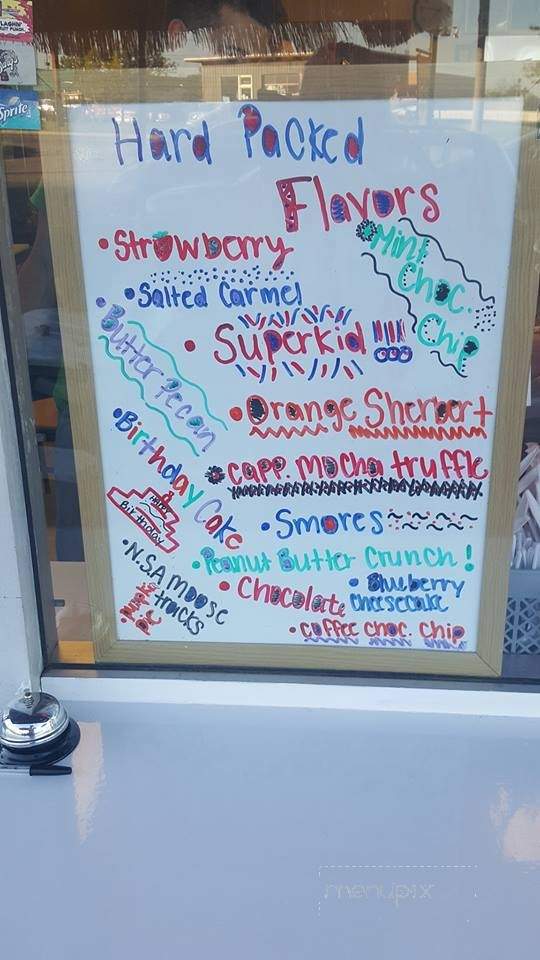 Hard Packed
Flavors
• Strawberry
• Mint
Choc.
Chip
• Salted Carmel
• Superkid !!!!
• Butter Pecan
• Orange Sherbert
• Birthday Cake
• capp. mocha truffle
Birthday
• Smores
• Peanut Butter Crunch!
• N.S.A moose
tracks
• Chocolate
• Blueberry
cheesecake
• coffee choc. chip
Sprite
menupix